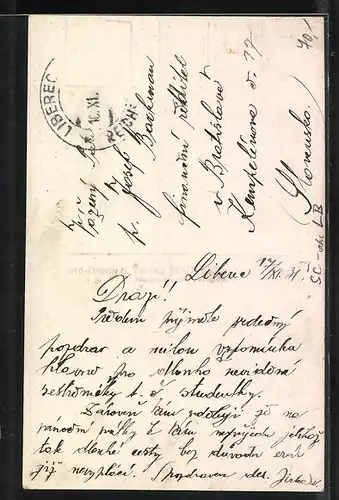 LIBEREC
REICHE
XI.
Vážený Pan
p. Josef Bachman
finanční ředitel
v Bratislavě
Kempelenova č. 17
Slovensko.
Liberec 17/XI.31.
Drazí!
Předem přijměte srdečný
pozdrav a milou vzpomínku
hlavně pro dlouho neviděné
sestřeničky t. č. studentky.
Zároveň Vám sděluji že na
vánoční svátky k Vám nepřijedu jelikož
tak dlouhé cesty bez důvodu
jij nevyplácí. S pozdravem